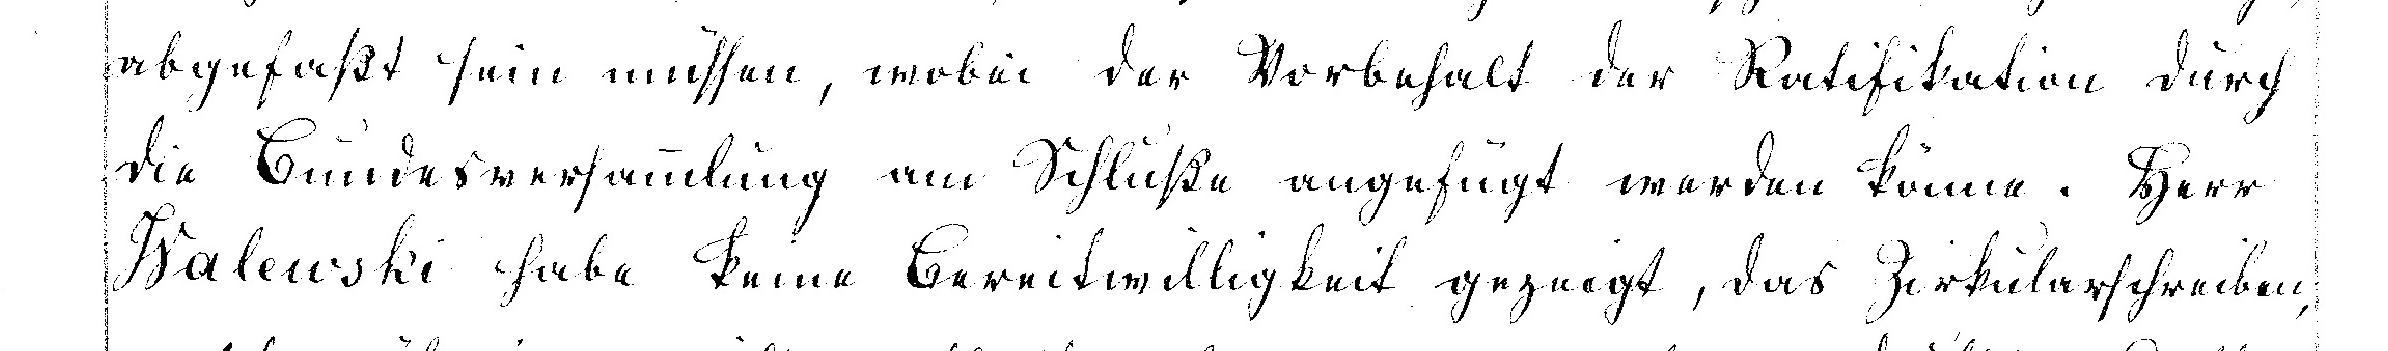 abgefaßt sein müssen, wobei der Vorbehalt der Ratifikation durch
die Bundesversam̅lung am Schluße angefügt werden könne. Herr
Walewski habe keine Bereitwilligkeit gezeigt, das Zirkularschreiben,